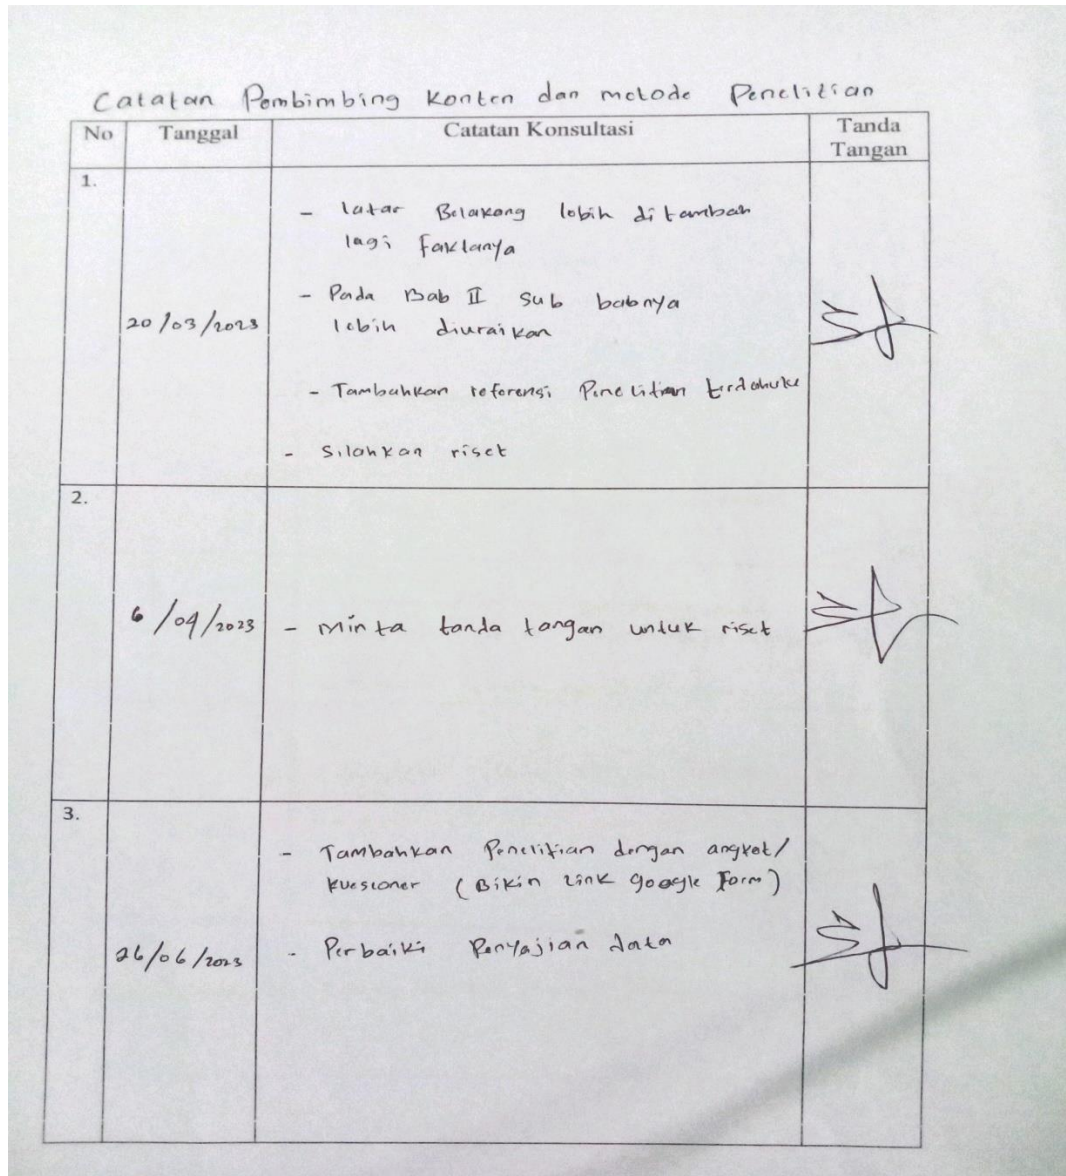 Catatan Pembimbing Konten dan metode Penelitian
No Tanggal Catatan Konsultasi Tanda Tangan
1.
20/03/2023
- latar Belakang lebih ditambah
lagi faktanya
- Pada Bab II Sub babnya
lebih diuraikan
- Tambahkan referensi Penelitian terdahulu
- Silahkan riset
2.
6/04/2023
- Minta tanda tangan untuk riset
3.
26/06/2023
- Tambahkan Penelitian dengan angket/
kuesioner (Bikin Link google Form)
- Perbaiki Penyajian data